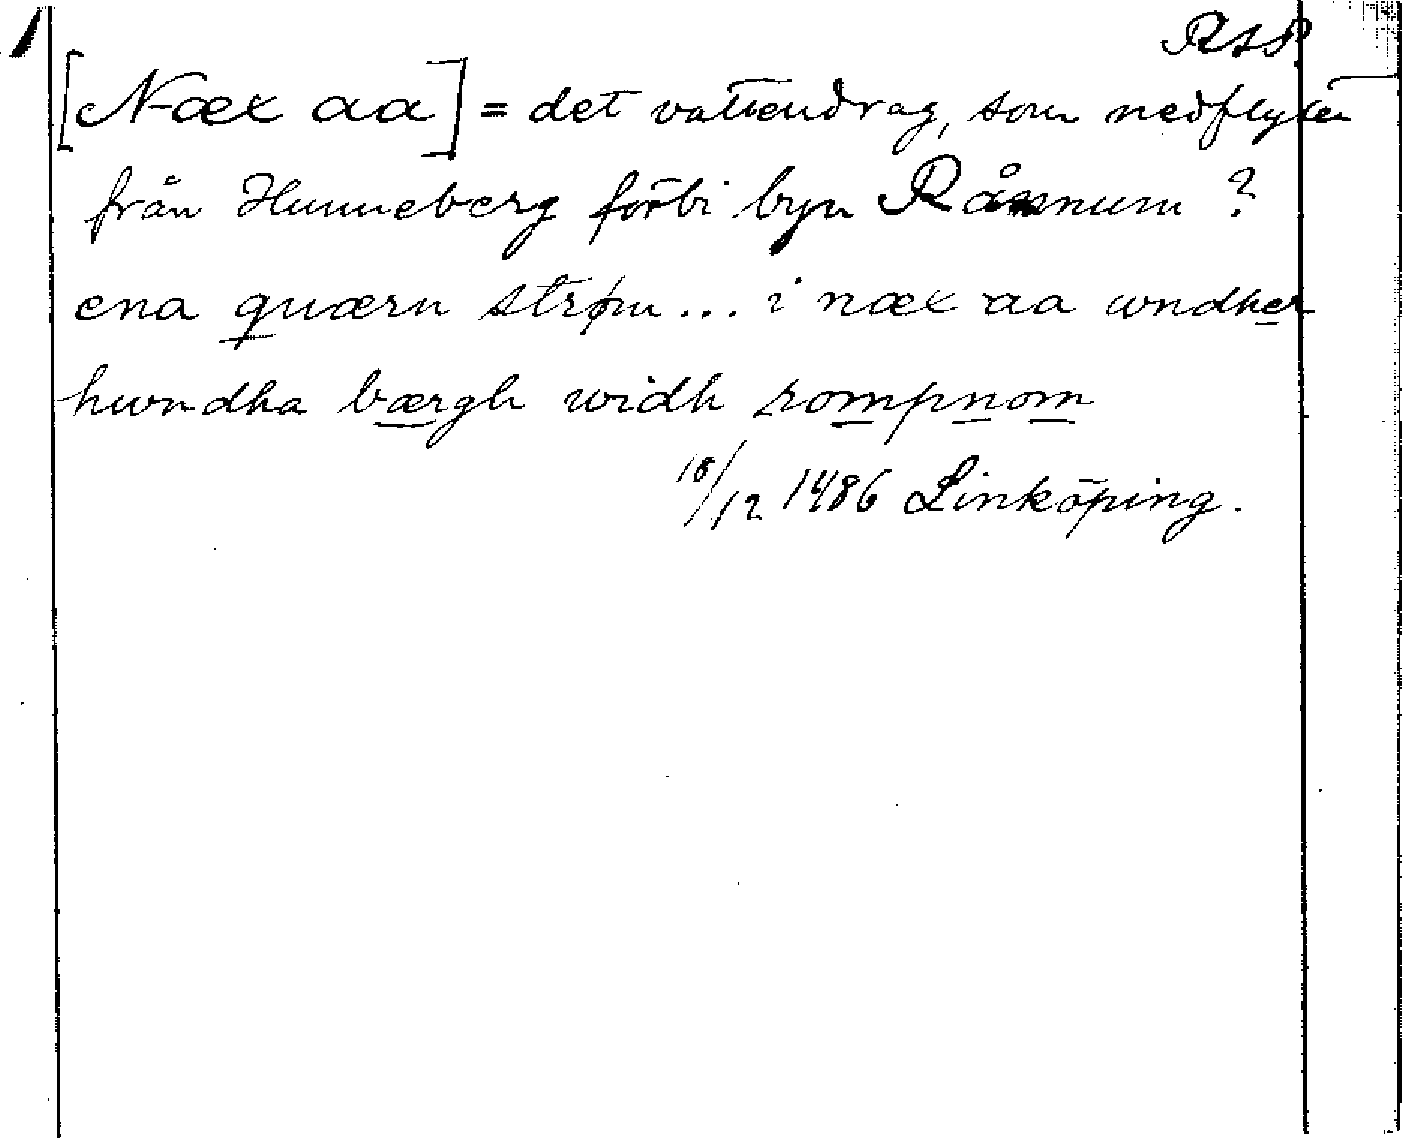 RAP.
[Næx aa] = det vattendrag, som nedflyter
från Hunneberg förbi byn Rånnum ?
ena quærn strøm... i næx aa wndher
hwndha bærgh widh rompnom
18/12 1486 Linköping.